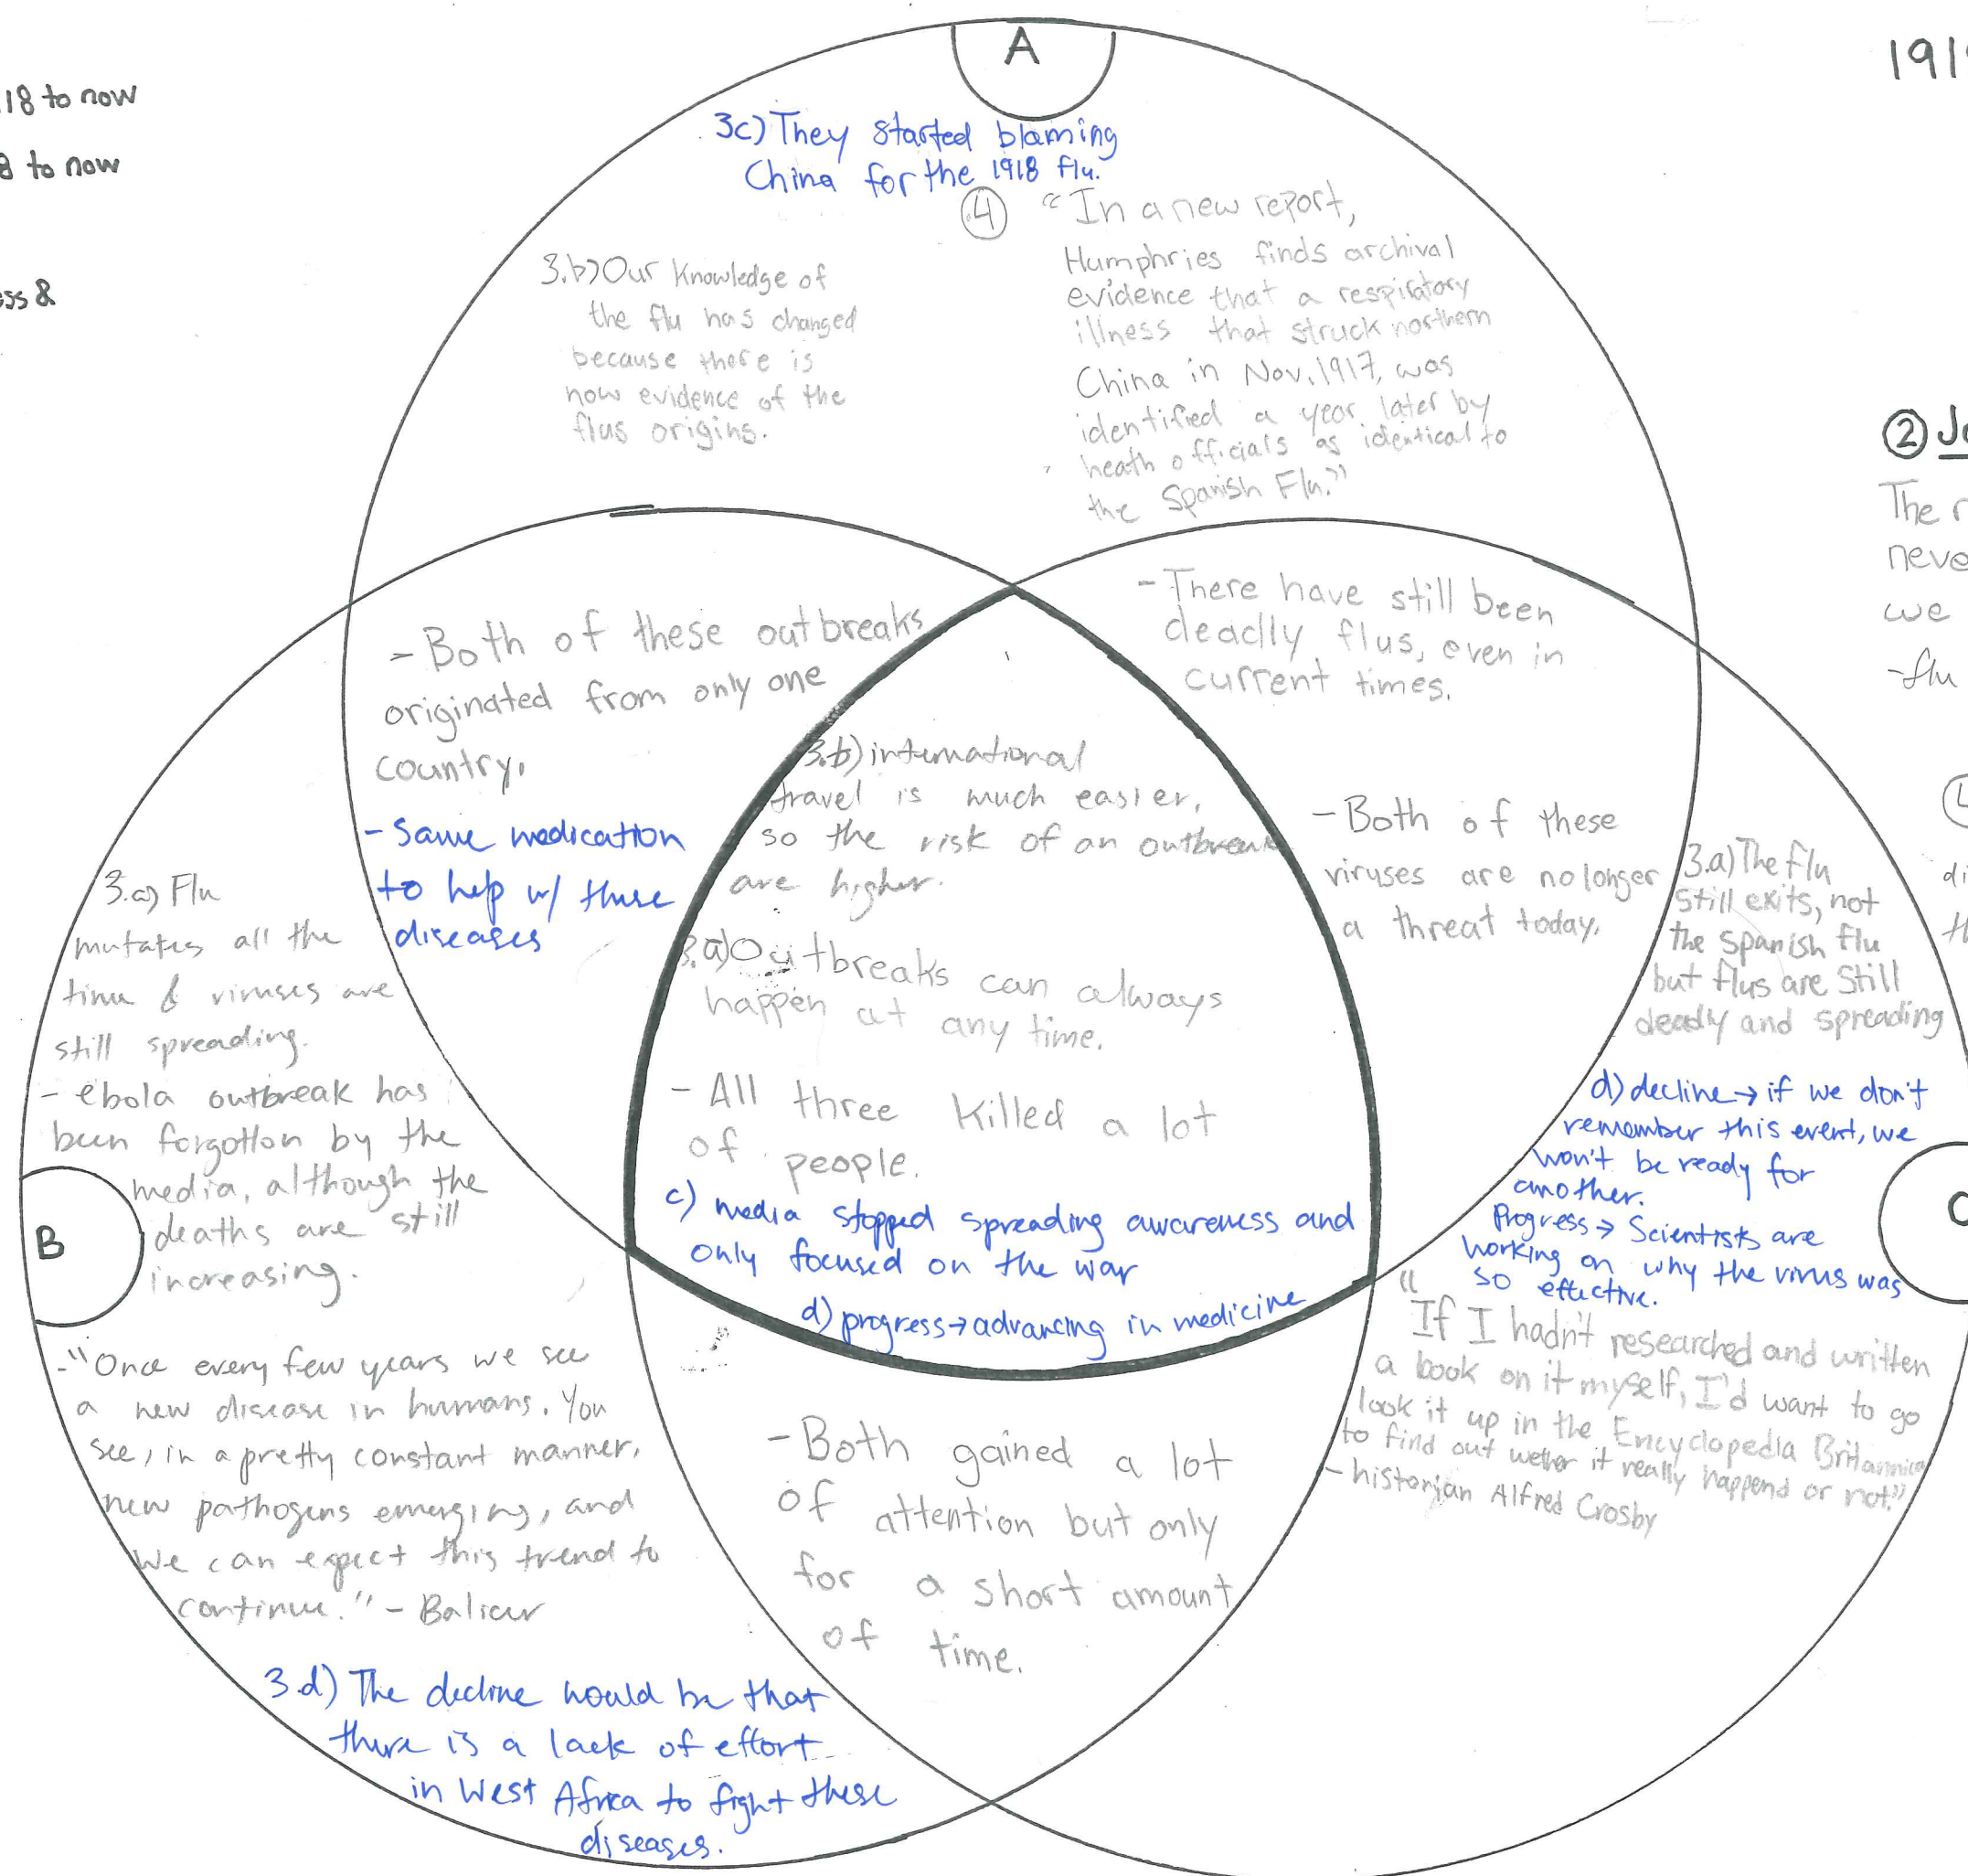 18 to now
8 to now
ess &
A
3c) They started blaming
China for the 1918 flu.
④ "In a new report,
Humphries finds archival
evidence that a respiratory
illness that struck northern
China in Nov. 1917, was
identified a year later by
heath officials as identical to
the Spanish Flu."
3.b) Our Knowledge of
the flu has changed
because there is
now evidence of the
flus origins.
- Both of these outbreaks
originated from only one
country.
- Same medication
to help w/ these
diseases
- There have still been
deadlly flus, even in
current times.
- Both of these
viruses are no longer
a threat today.
3.b) international
travel is much easier,
so the risk of an outbreak
are higher.
3.a) Outbreaks can always
happen at any time.
- All three killed a lot
of people.
c) media stopped spreading awareness and
only focused on the war
d) progress → advancing in medicine
3.a) Flu
mutates all the
time & viruses are
still spreading.
- ebola outbreak has
been forgotton by the
media, although the
deaths are still
increasing.
B
- "Once every few years we see
a new disease in humans. You
see, in a pretty constant manner,
new pathogens emerging, and
we can expect this trend to
continue." - Balicer
3.d) The decline would be that
there is a lack of effort
in West Africa to fight these
diseases.
- Both gained a lot
of attention but only
for a short amount
of time.
3.a) The flu
still exits, not
the spanish flu
but flus are still
deadly and spreading
d) decline → if we don't
remember this event, we
won't be ready for
another.
Progress → Scientists are
working on why the virus was
so effective.
C
"If I hadn't researched and written
a book on it myself, I'd want to go
look it up in the Encyclopedia Britannica
to find out wether it really happend or not."
- historian Alfred Crosby
191
② Jo
The r
neve
we
- flu
di
th